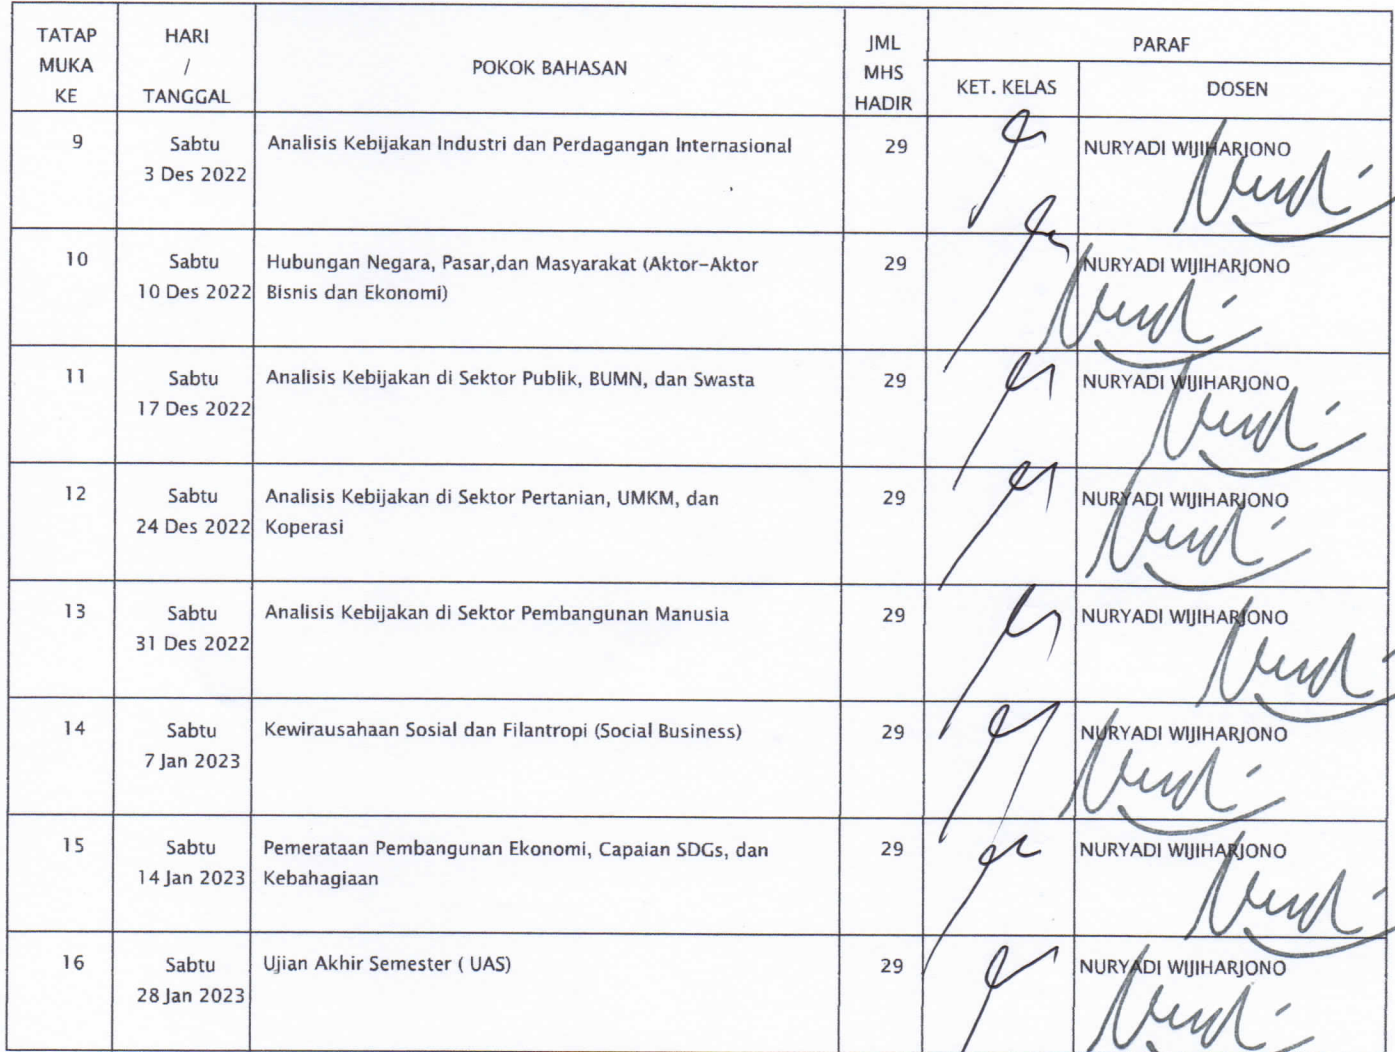 TATAP MUKA KE
HARI / TANGGAL
POKOK BAHASAN
JML MHS HADIR
PARAF
KET. KELAS
DOSEN
9
Sabtu
3 Des 2022
Analisis Kebijakan Industri dan Perdagangan Internasional
29
NURYADI WIJIHARJONO
10
Sabtu
10 Des 2022
Hubungan Negara, Pasar,dan Masyarakat (Aktor-Aktor
Bisnis dan Ekonomi)
29
NURYADI WIJIHARJONO
11
Sabtu
17 Des 2022
Analisis Kebijakan di Sektor Publik, BUMN, dan Swasta
29
NURYADI WIJIHARJONO
12
Sabtu
24 Des 2022
Analisis Kebijakan di Sektor Pertanian, UMKM, dan
Koperasi
29
NURYADI WIJIHARJONO
13
Sabtu
31 Des 2022
Analisis Kebijakan di Sektor Pembangunan Manusia
29
NURYADI WIJIHARJONO
14
Sabtu
7 Jan 2023
Kewirausahaan Sosial dan Filantropi (Social Business)
29
NURYADI WIJIHARJONO
15
Sabtu
14 Jan 2023
Pemerataan Pembangunan Ekonomi, Capaian SDGs, dan
Kebahagiaan
29
NURYADI WIJIHARJONO
16
Sabtu
28 Jan 2023
Ujian Akhir Semester ( UAS)
29
NURYADI WIJIHARJONO